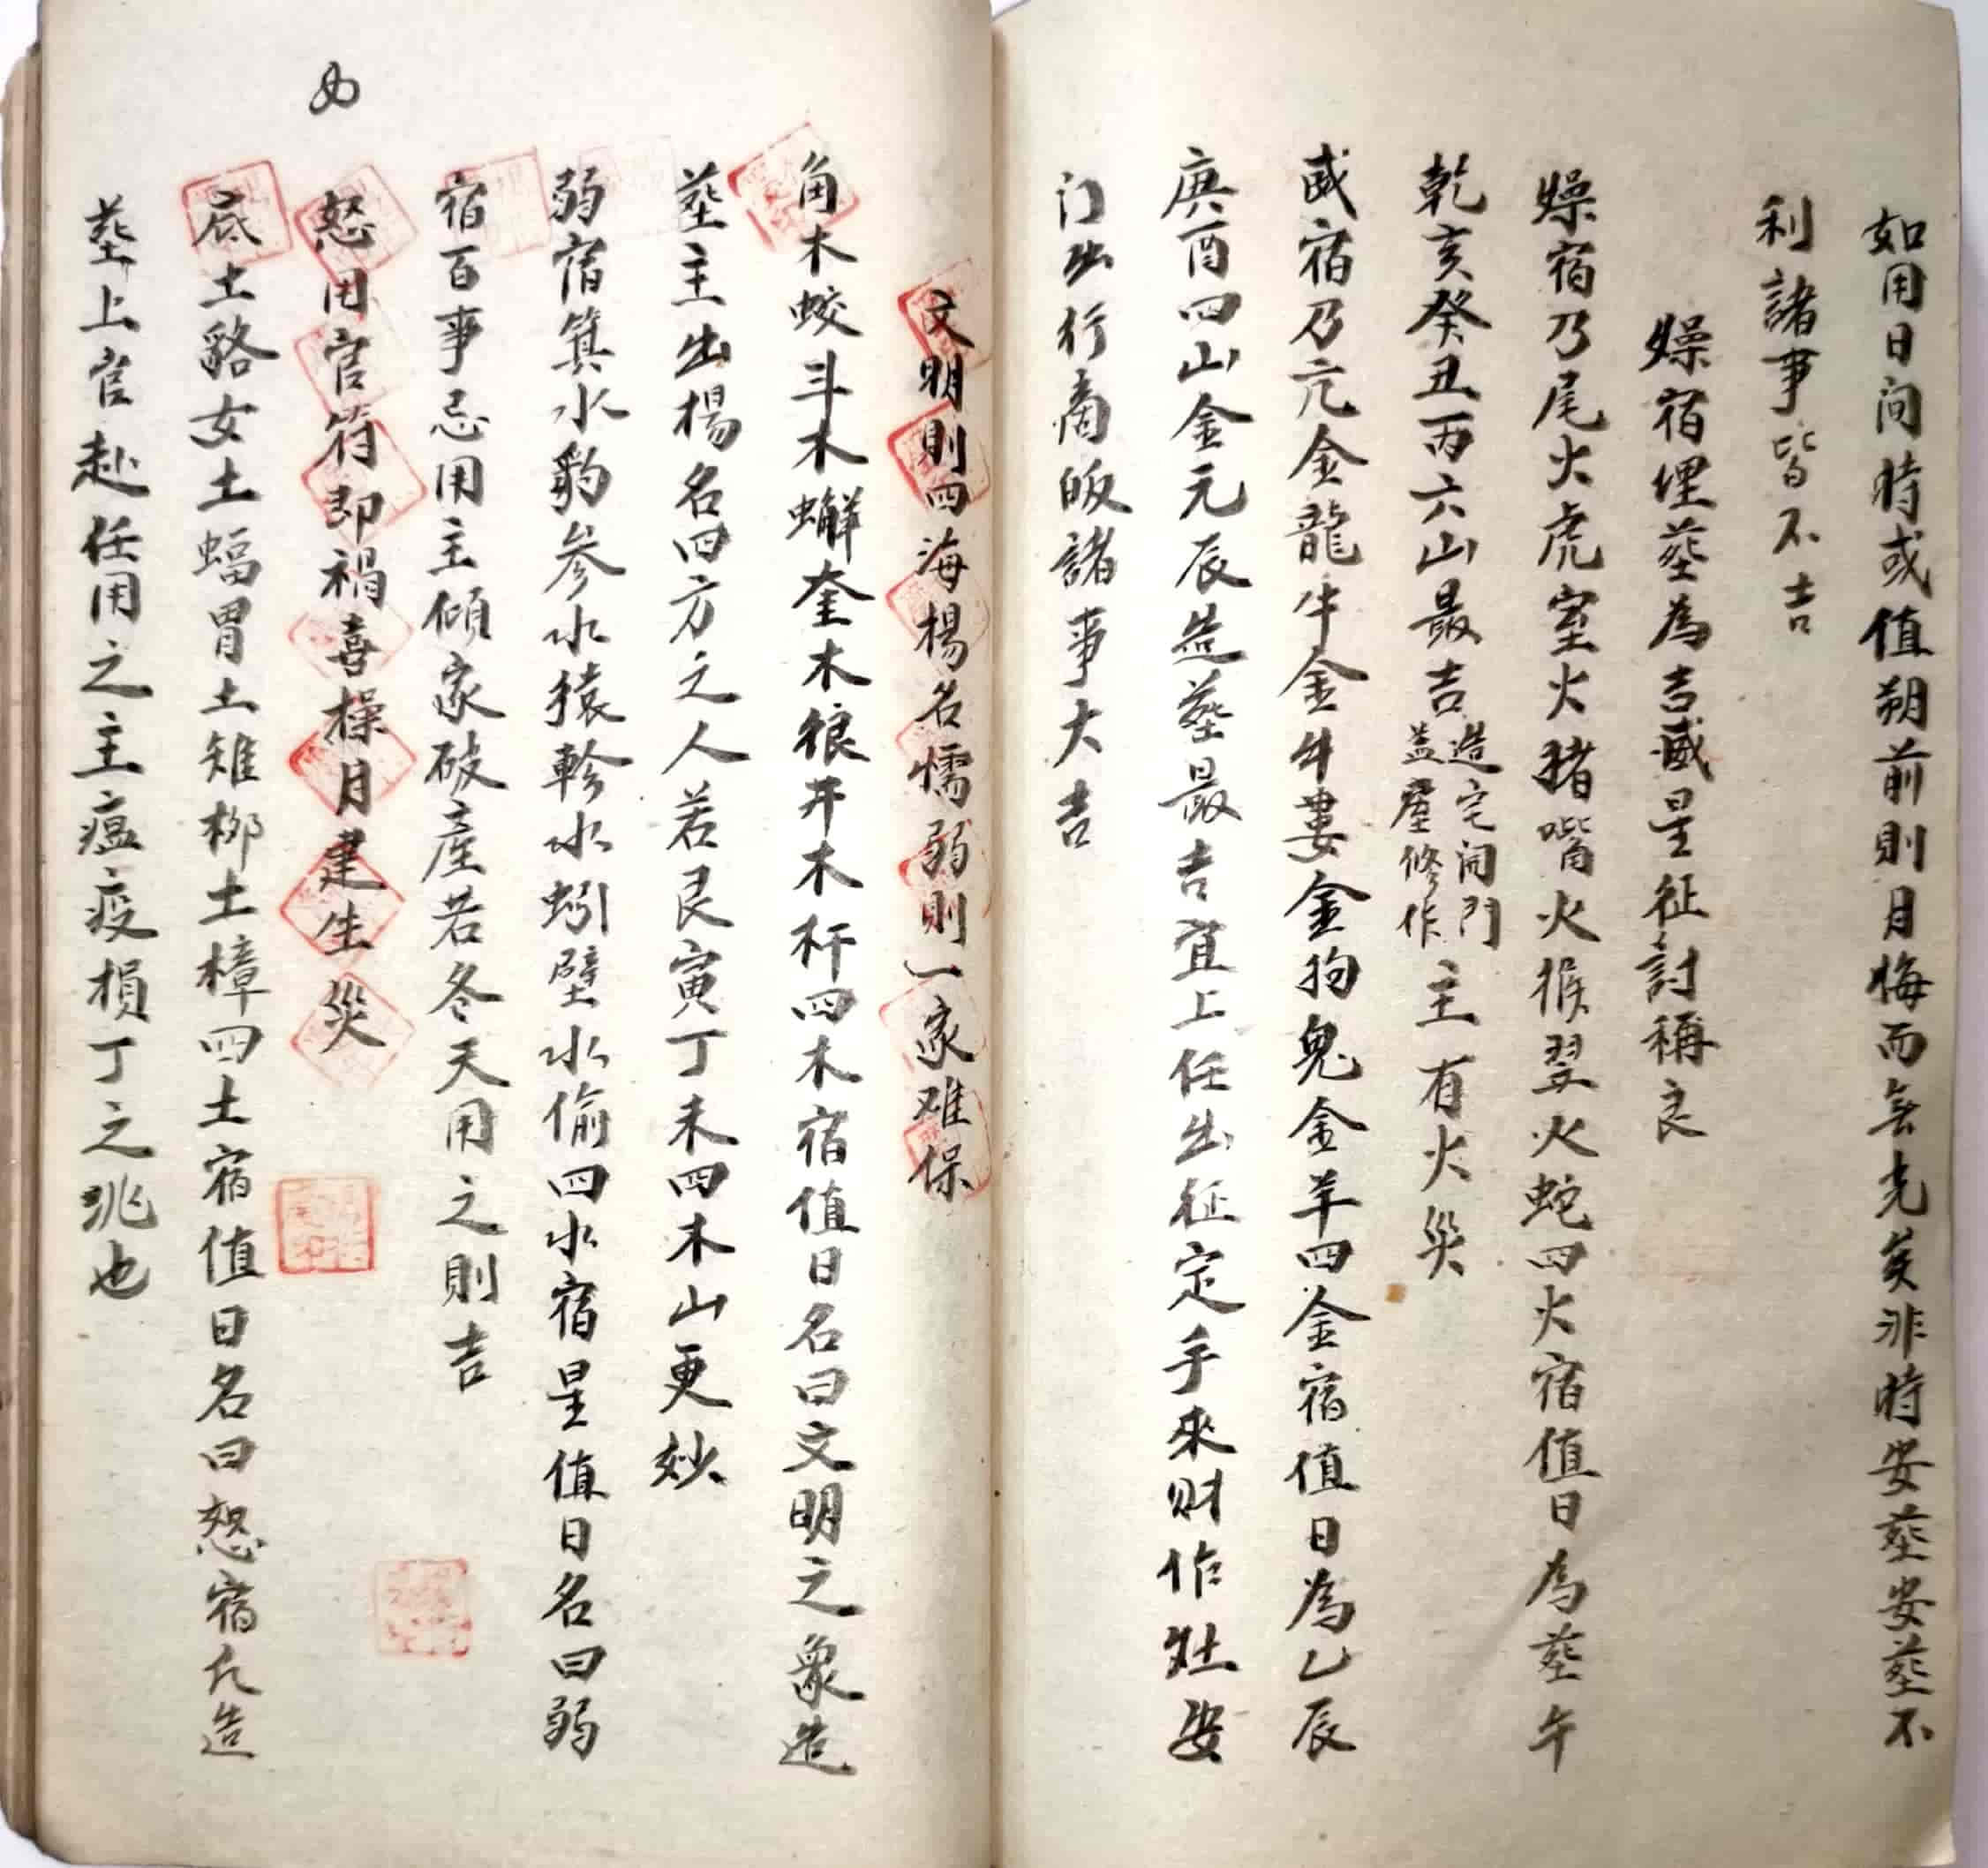 如用日间時或值朔前則月晦而無光矣非時安葬安葬不
利諸事皆不吉
燥宿埋葬為吉威星征討稱良
燥宿乃尾火虎室火猪嘴火猴翌火蛇四火宿值日為葬午
乾亥癸丑丙六山最吉造宅開門盖屋修作主有火災
威宿乃亢金龍牛金牛婁金狗鬼金羊四金宿值日為乙辰
庚酉四山金元辰造葬最吉宜上任出征定手來财作灶安
门出行商皈諸事大吉
文明則四海楊名懦弱則一家难保
角木蛟斗木蠏奎木狼井木秆四木宿值日名曰文明之象造
葬主出楊名四方之人若艮寅丁未四木山更妙
弱宿箕水豹参水猿軫水蚓壁水偷四水宿星值日名曰弱
宿百事忌用主傾家破產若冬天用之則吉
怒用官符即禍喜操月建生災
底土貉女土蝠胃土雉柳土樟四土宿值日名曰怒宿凡造
葬上官赴任用之主瘟疫損丁之兆也